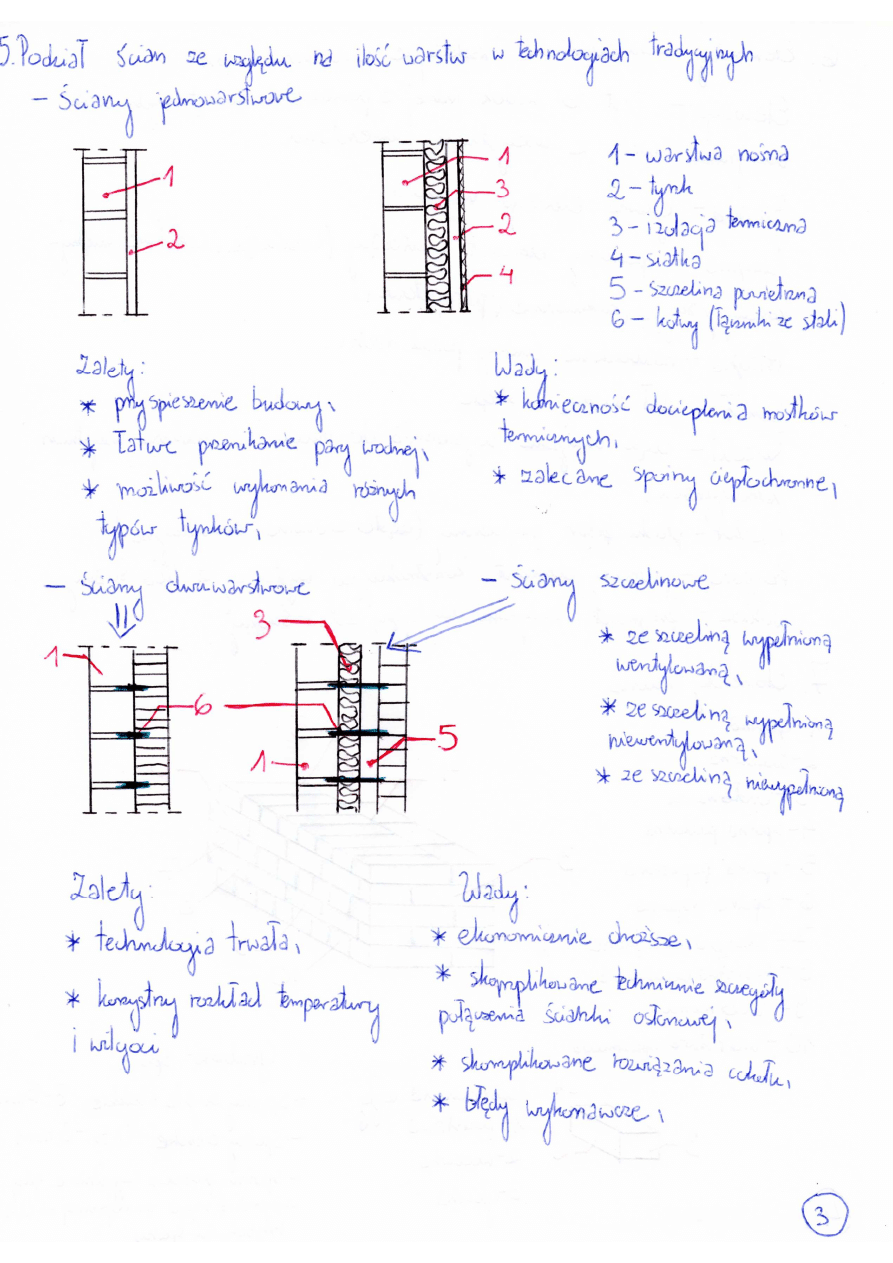 5. Podział ścian ze względu na ilość warstw w technologiach tradycyjnych
- Ściany jednowarstwowe
1
2
1
3
2
4
1 - warstwa nośna
2 - tynk
3 - izolacja termiczna
4 - siatka
5 - szczelina powietrzna
6 - kotwy (łączniki ze stali)
Zalety:
* przyspieszenie budowy,
* łatwe przenikanie pary wodnej,
* możliwość wykonania różnych
typów tynków,
Wady:
* konieczność docieplenia mostków
termicznych,
* zalecane spoiny ciepłochronne,
- Ściany dwuwarstwowe
- Ściany szczelinowe
1
6
3
1
5
* ze szczeliną wypełnioną
wentylowaną,
* ze szczeliną wypełnioną
niewentylowaną,
* ze szczeliną niewypełnioną
Zalety:
* technologia trwała,
* korzystny rozkład temperatury
i wilgoci
Wady:
* ekonomicznie droższe,
* skomplikowane technicznie szczegóły
połączenia ścianki osłonowej,
* skomplikowane rozwiązania cokołu,
* błędy wykonawcze,
3